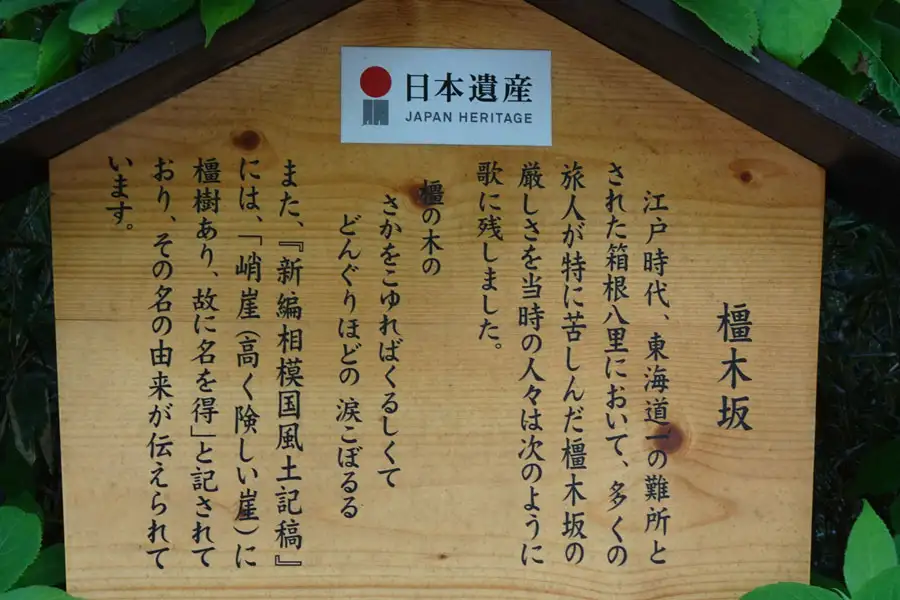 日本遺産
JAPAN HERITAGE
橿木坂
江戸時代、東海道一の難所と
された箱根八里において、多くの
旅人が特に苦しんだ橿木坂の
厳しさを当時の人々は次のように
歌に残しました。
橿の木の
さかをこゆればくるしくて
どんぐりほどの 涙こぼるる
また、『新編相模国風土記稿』
には、「峭崖(高く険しい崖)に
橿樹あり、故に名を得」と記されて
おり、その名の由来が伝えられて
います。